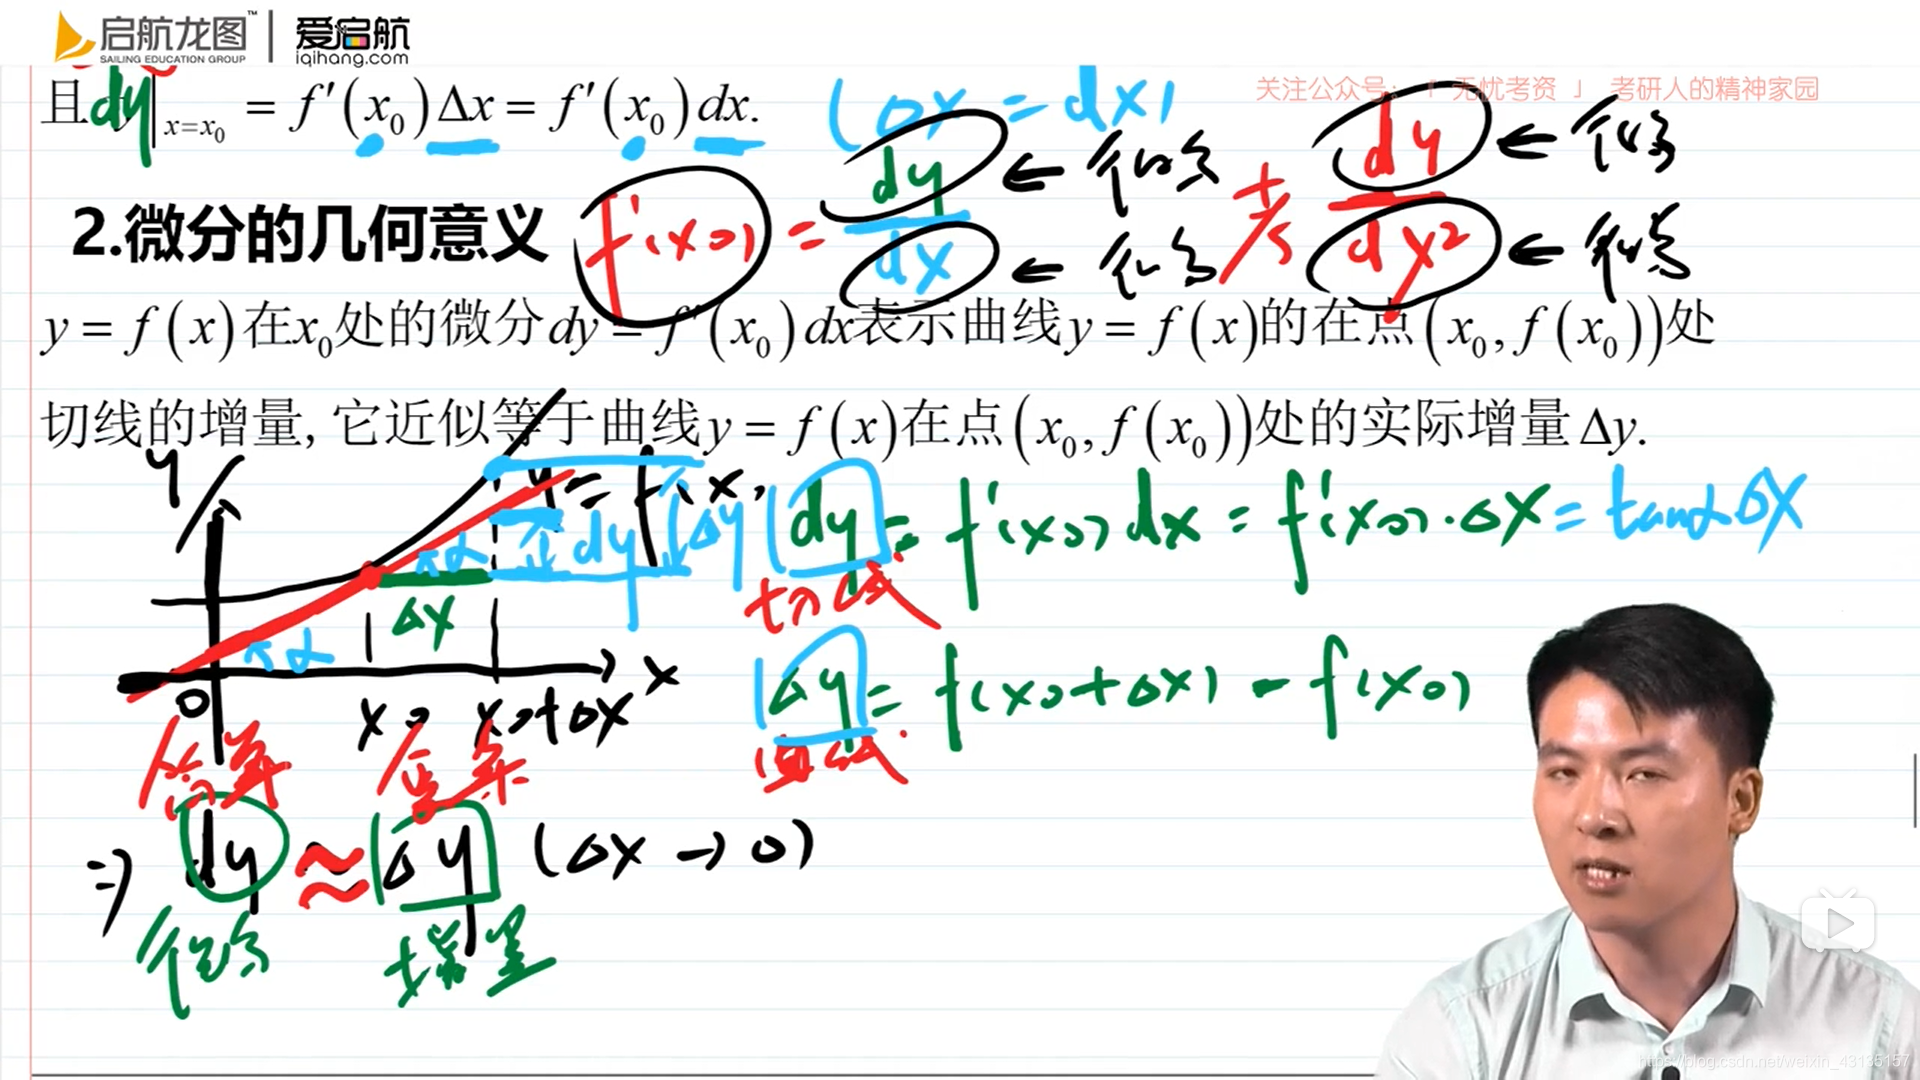 启航龙图™ | 爱启航
SAILING EDUCATION GROUP iqihang.com
关注公众号：「 无忧考资 」 考研人的精神家园
且dy|x=x₀ = f′(x₀)Δx = f′(x₀)dx. (Δx = dx)
2.微分的几何意义
f'(x0) = dy/dx ← 微分 ← 微分
考 dy/dx² ← 微分 ← 微分
y = f(x)在x₀处的微分dy = f′(x₀)dx表示曲线y = f(x)的在点(x₀, f(x₀))处
切线的增量, 它近似等于曲线y = f(x)在点(x₀, f(x₀))处的实际增量Δy.
y
y = f(x)
α dy Δy
Δx
α
0 x0 x0+Δx x
dy = f'(x0)dx = f'(x0)·Δx = tanαΔx
切线
Δy = f(x0+Δx) - f(x0)
曲线
简单 复杂
⇒ dy ≈ Δy (Δx → 0)
微分 增量
https://blog.csdn.net/weixin_43135157